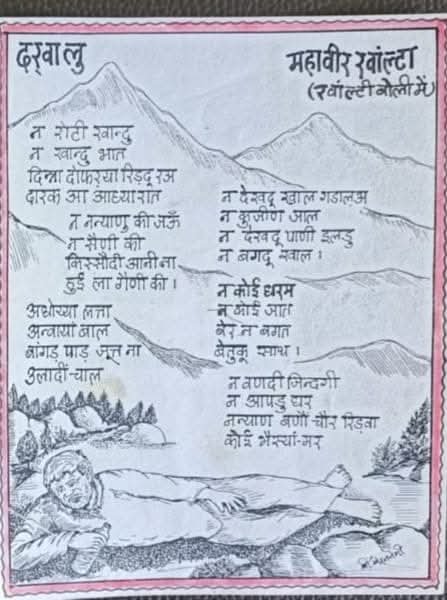 दरवालु
महावीर रवांल्टा
(रवांल्टी बोली में)
न रोटी खान्दु
न खान्दु भात
दिन्ना दोफर्‌या रिड़दू रअ
दारुक आ आध्या रात
न नन्याणु की जऊँ
न सैणी की
किस्सौदी आनी ना
हुई ला गैणी की।
अधोध्या लत्ता
अन्वाया बाल
बांगड़ पाड़ जूत्त ना
उलादीं चाल
न देखदू खाल गडालअ
न कुजीण आल
न देखदू पाणी इलडु
न बगदू खाल।
न कोई धरम
न कोई जात
बेर न बगत
बेतुकू साथ।
न वणदी जिन्दगी
न आपडु घर
नन्याण बणौं चौर रिड़वा
कोई भैस्यां मर